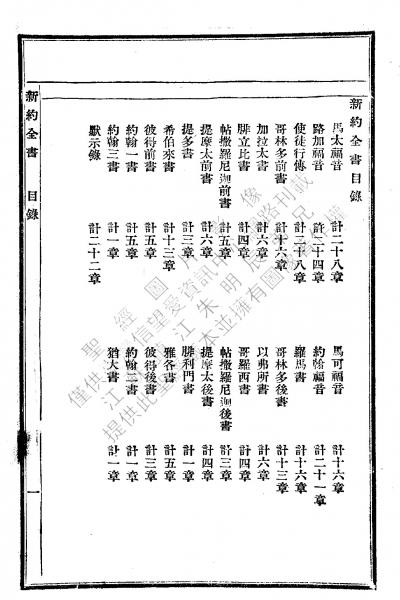 新約全書目錄
馬太福音 計二十八章 馬可福音 計十六章
路加福音 計二十四章 約翰福音 計二十一章
使徒行傳 計二十八章 羅馬書 計十六章
哥林多前書 計十六章 哥林多後書 計十三章
加拉太書 計六章 以弗所書 計六章
腓立比書 計四章 哥羅西書 計四章
帖撒羅尼迦前書 計五章 帖撒羅尼迦後書 計三章
提摩太前書 計六章 提摩太後書 計四章
提多書 計三章 腓利門書 計一章
希伯來書 計十三章 雅各書 計五章
彼得前書 計五章 彼得後書 計三章
約翰一書 計五章 約翰二書 計一章
約翰三書 計一章 猶大書 計一章
默示錄 計二十二章
新約全書 目錄 一